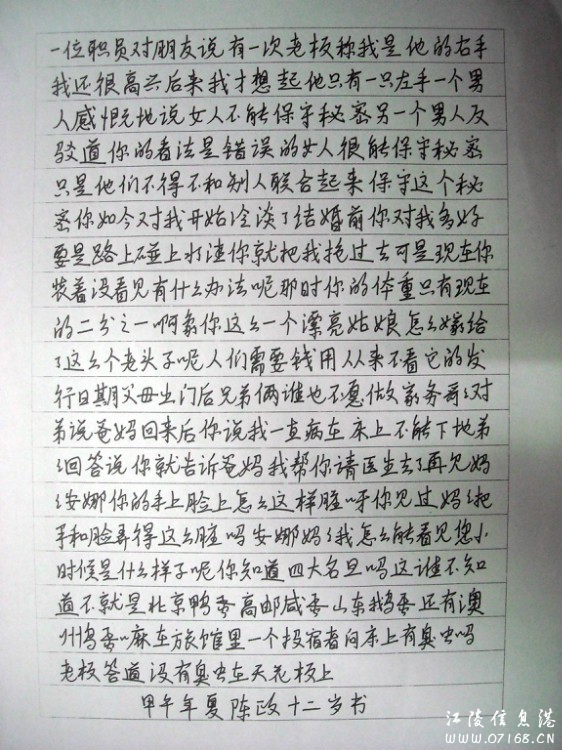 一位职员对朋友说有一次老板称我是他的右手
我还很高兴后来我才想起他只有一只左手一个男
人感慨地说女人不能保守秘密另一个男人反
驳道你的看法是错误的女人很能保守秘密
只是他们不得不和别人联合起来保守这个秘
密你如今对我开始冷淡了结婚前你对我多好
要是路上碰上水洼你就把我抱过去可是现在你
装着没看见有什么办法呢那时你的体重只有现在
的二分之一啊象你这么一个漂亮姑娘怎么嫁给
了这么个老头子呢人们需要钱用从来不看它的发
行日期父母出门后兄弟俩谁也不愿做家务哥哥对
弟说爸妈回来后你说我一直病在床上不能下地弟
弟回答说你就告诉爸妈我帮你请医生去了再见妈
妈安娜你的手上脸上怎么这样脏呀你见过妈妈把
手和脸弄得这么脏吗安娜妈妈我怎么能看见您小
时候是什么样子呢你知道四大名旦吗这谁不知
道不就是北京鸭蛋高邮咸蛋山东鹅蛋还有澳
州鸟蛋嘛在旅馆里一个投宿者问床上有臭虫吗
老板答道没有臭虫在天花板上
甲午年夏陈政十二岁书
江陵信息港
www.07168.CN